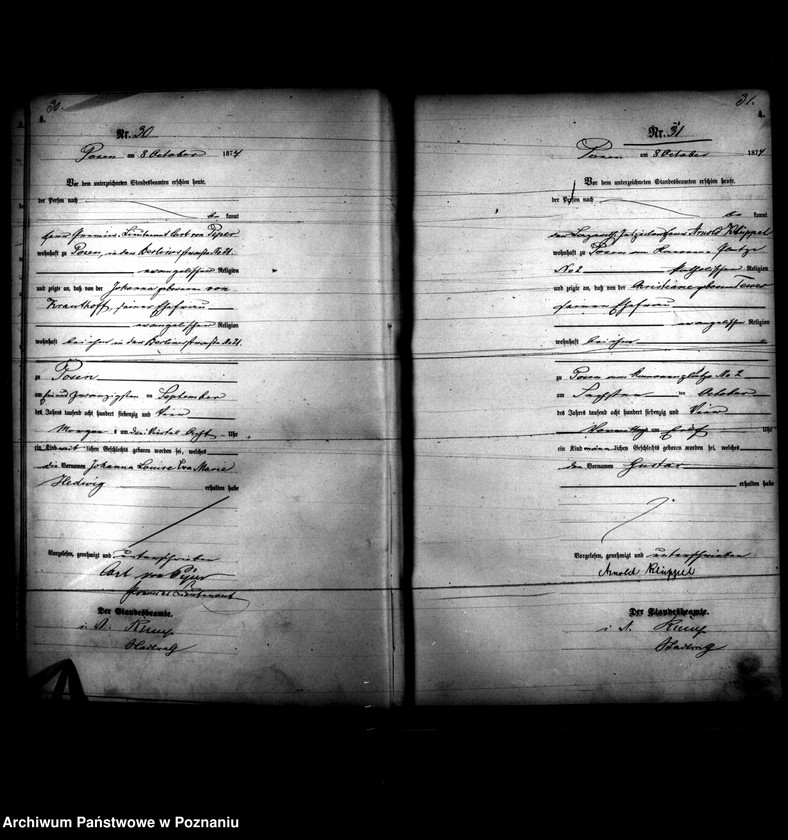 30.
A.
Nr. 30
Posen am 8 October 1874
Vor dem unterzeichneten Standesbeamten erschien heute,
der Person nach
be kannt
Herr Premier-Lieutenant Carl von
wohnhaft zu Posen, in der Berlinerstraße No 21.
evangelischer Religion
und zeigte an, daß von der Johanna geborenen von
Krauthoff, seiner Ehefrau
evangelischer Religion
wohnhaft bei ihm in der Berlinerstraße No 21.
zu Posen
am Ein und zwanzigsten ten September
des Jahres tausend acht hundert siebenzig und Vier
Morgens um drei Viertel Acht Uhr
ein Kind weib lichen Geschlechts geboren worden sei, welches
die Vornamen Johanna Louise Eva Marie
Hedwig
erhalten habe
Vorgelesen, genehmigt und unterschrieben
Carl von
Premier Lieutenant
Der Standesbeamte.
i. V.
Stadtrath
31.
A.
Nr. 31
Posen am 8 October 1874
Vor dem unterzeichneten Standesbeamten erschien heute,
der Person nach
be kannt
der Lazareth Inspector Herr Arnold Klüppel
wohnhaft zu Posen am Kanonen Platze
No 2 katholischer Religion
und zeigte an, daß von der Christiane geborenen
seiner Ehefrau
evangelischer Religion
wohnhaft bei ihm
zu Posen am Kanonenplatze No 2
am Sechsten ten October
des Jahres tausend acht hundert siebenzig und Vier
Vormittags um Uhr
ein Kind männ lichen Geschlechts geboren worden sei, welches
den Vornamen Gustav
erhalten habe
Vorgelesen, genehmigt und unterschrieben
Arnold Klüppel
Der Standesbeamte.
i. V.
Stadtrath
Archiwum Państwowe w Poznaniu